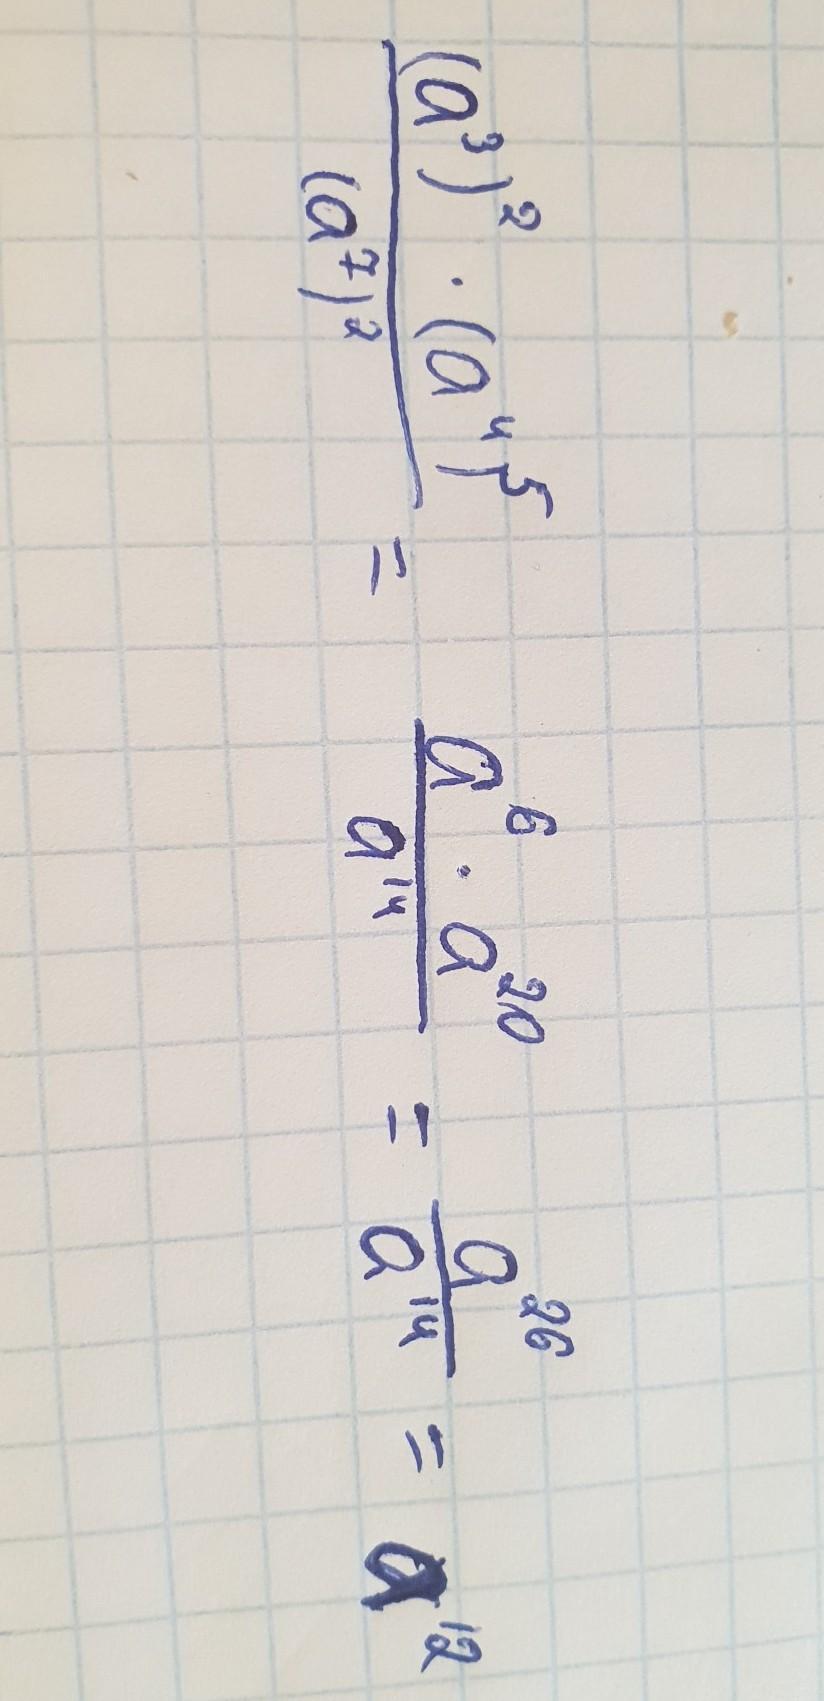 (a³)² · (a⁴)⁵ / (a⁷)² = a⁶ · a²⁰ / a¹⁴ = a²⁶ / a¹⁴ = a¹²